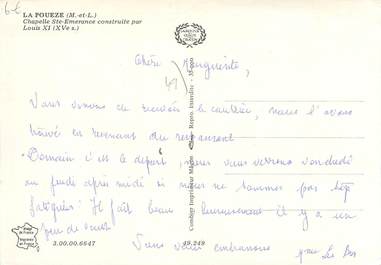 6€
LA POUEZE (M.-et-L.)
Chapelle Ste-Emerance construite par
Louis XI (XVe s.)
Chère Marguerite,
49
Nous venons de recevoir la , nous l'avons
trouvé en revenant du restaurant
Demain c'est le départ, nous vous verrons vendredi
ou jeudi après midi si nous ne sommes pas trop
fatigués. Il fait beau heureusement il y a un
peu de vent
Nous vous embrassons
Combier Imprimeur Mâcon
Repro. Interdite
3.00.00.6647
49.249